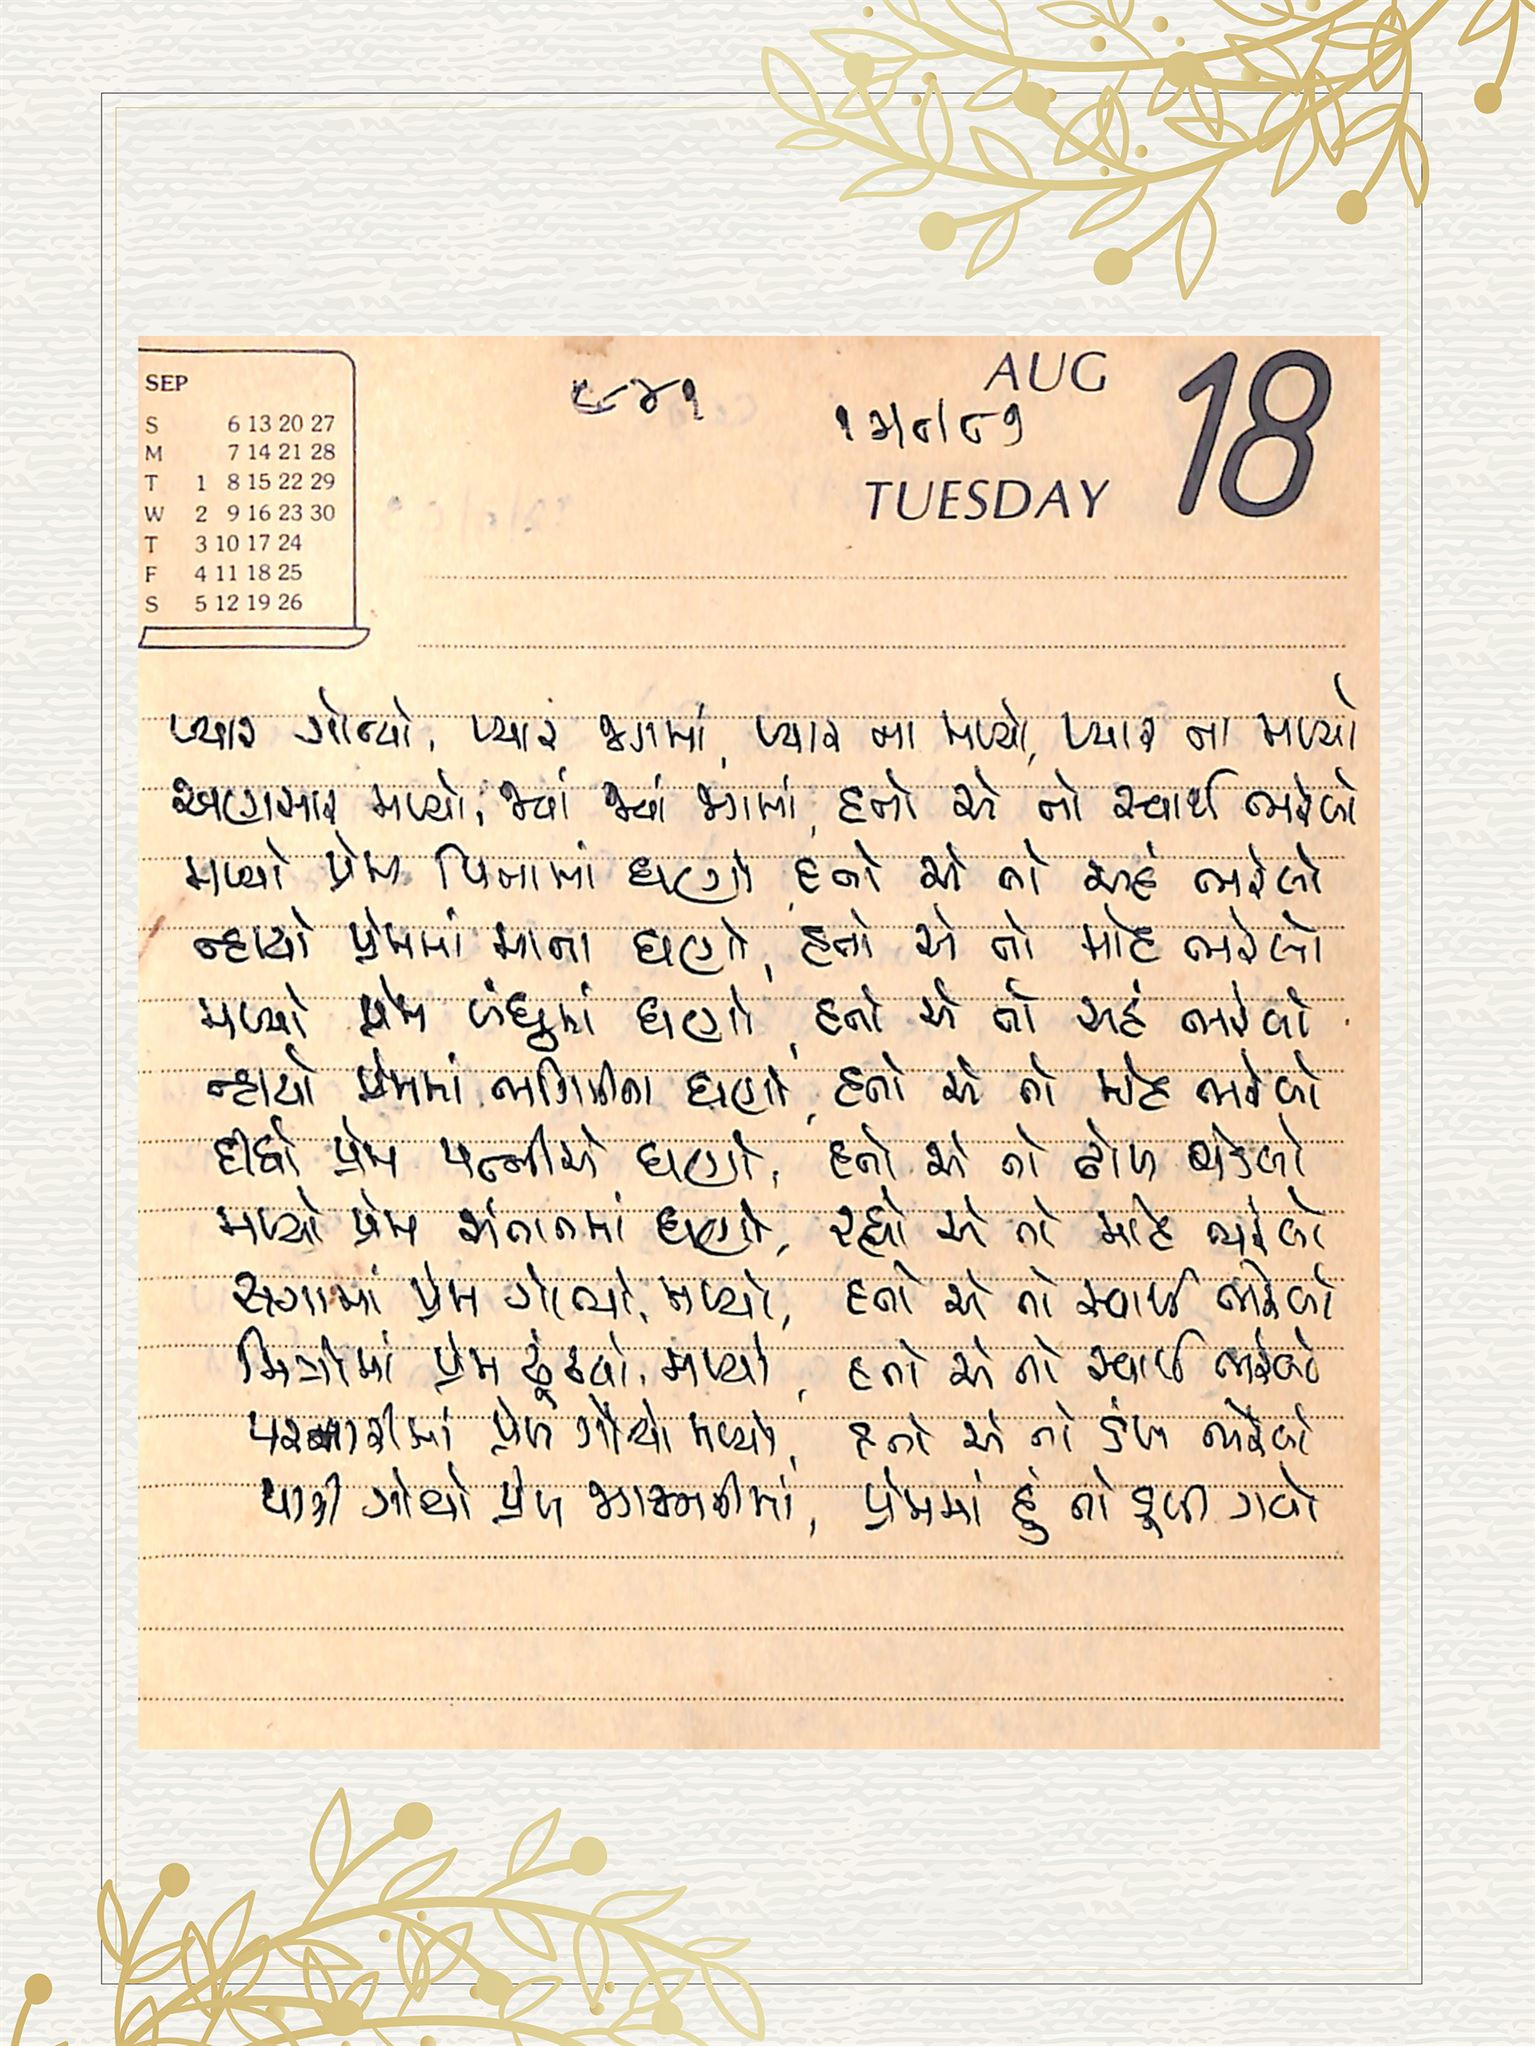 SEP
S 6 13 20 27
M 7 14 21 28
T 1 8 15 22 29
W 2 9 16 23 30
T 3 10 17 24
F 4 11 18 25
S 5 12 19 26
AUG
TUESDAY
18
પ્યાર ગોત્યો, પ્યાર જગમાં, પ્યાર ના મળ્યો, પ્યાર ના મળ્યો
અણસાર મળ્યો, જ્યાં જ્યાં જગમાં, હતો એ તો સ્વાર્થ ભરેલો
મળ્યો પ્રેમ પિતામાં ઘણો, હતો એ તો અહં ભરેલો
ન્હાયો પ્રેમમાં માતા ઘણો, હતો એ તો મોહ ભરેલો
મળ્યો પ્રેમ બંધુમાં ઘણો, હતો એ તો અહં ભરેલો
ન્હાયો પ્રેમમાં ભગિનીના ઘણો, હતો એ તો મોહ ભરેલો
દીધો પ્રેમ પત્નીએ ઘણો, હતો એ તો ઢોળ ચડેલો
મળ્યો પ્રેમ સંતાનમાં ઘણો, રહ્યો એ તો મોહે ભરેલો
સગામાં પ્રેમ ગોત્યો, મળ્યો, હતો એ તો સ્વાર્થ ભરેલો
મિત્રોમાં પ્રેમ ઢૂંઢયો, મળ્યો, હતો એ તો સ્વાર્થ ભરેલો
પરનારીમાં પ્રેમ ગોત્યો મળ્યો, હતો એ તો ડંખ ભરેલો
ગોત્યો પ્રેમ જગજનનીમાં, પ્રેમમાં હું તો ડૂબી ગયો